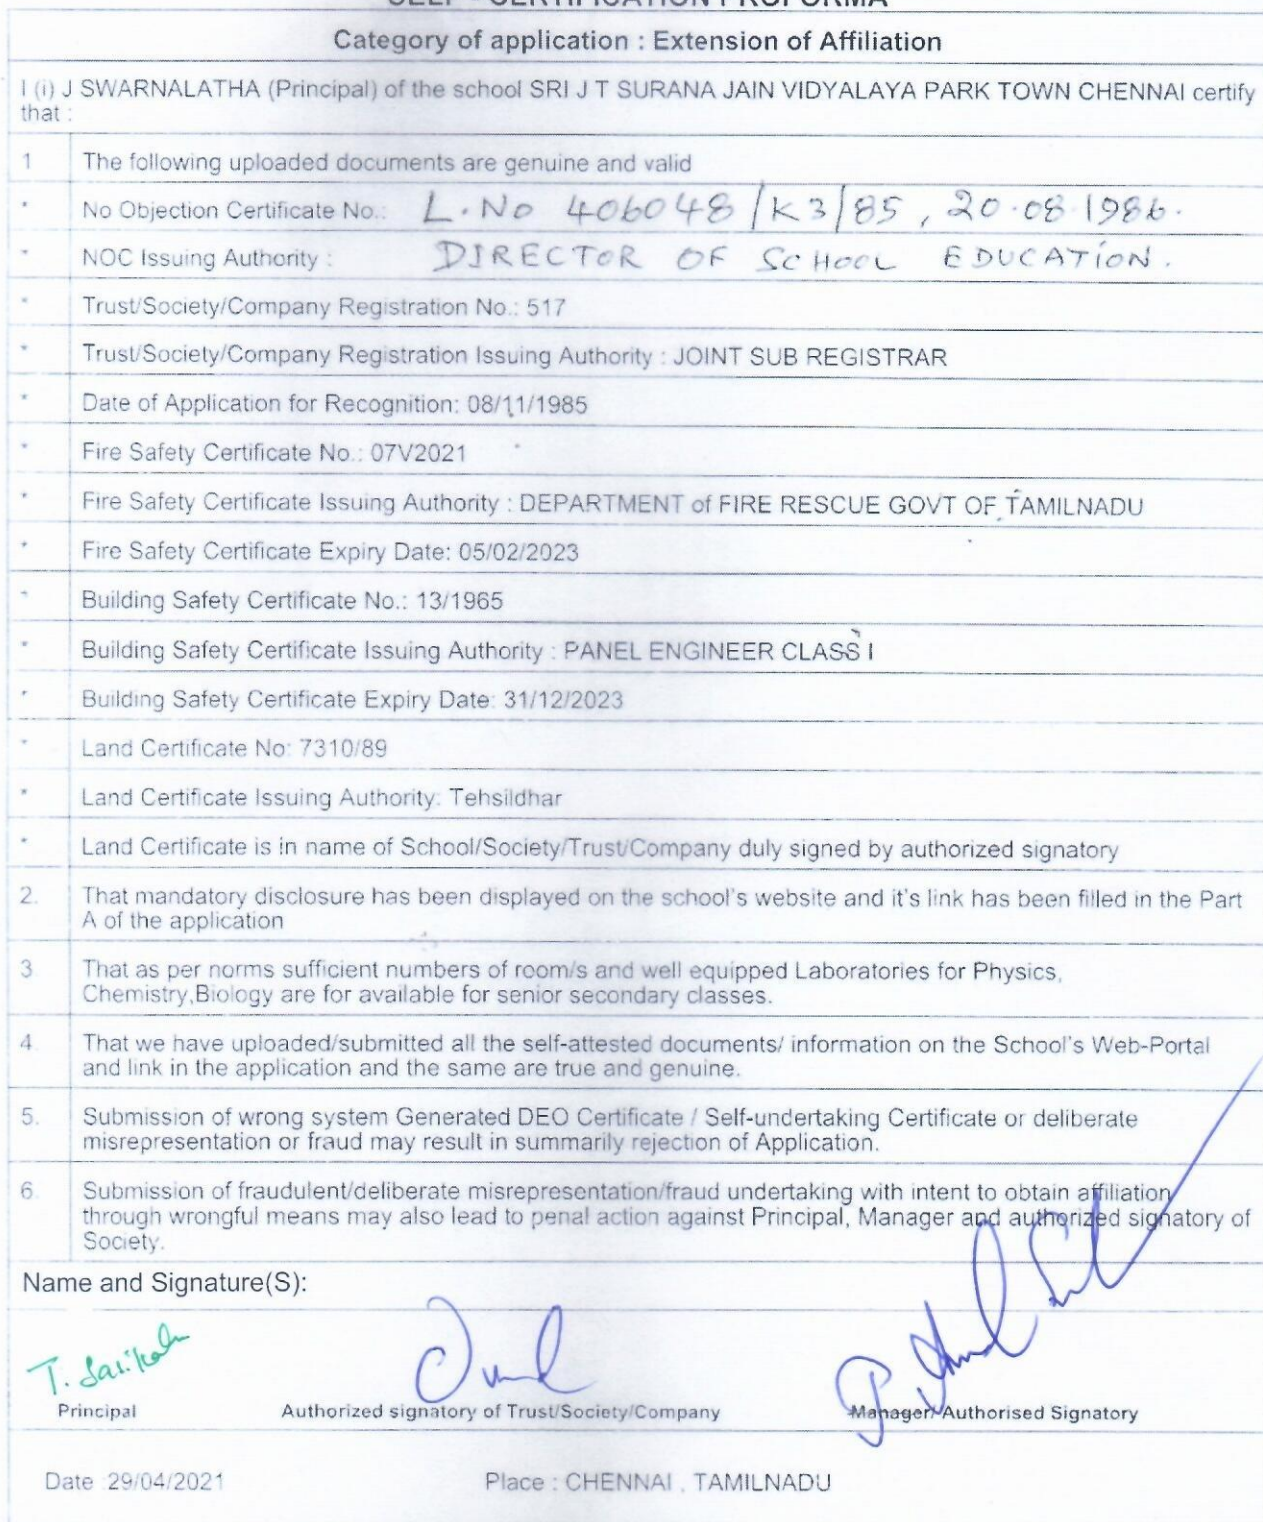 SELF - CERTIFICATION PROFORMA
Category of application : Extension of Affiliation
I (i) J SWARNALATHA (Principal) of the school SRI J T SURANA JAIN VIDYALAYA PARK TOWN CHENNAI certify
that :
1 The following uploaded documents are genuine and valid
* No Objection Certificate No.: L.No 406048/K3/85, 20.08.1986.
* NOC Issuing Authority : DIRECTOR OF SCHOOL EDUCATION.
* Trust/Society/Company Registration No.: 517
* Trust/Society/Company Registration Issuing Authority : JOINT SUB REGISTRAR
* Date of Application for Recognition: 08/11/1985
* Fire Safety Certificate No.: 07V2021
* Fire Safety Certificate Issuing Authority : DEPARTMENT of FIRE RESCUE GOVT OF TAMILNADU
* Fire Safety Certificate Expiry Date: 05/02/2023
* Building Safety Certificate No.: 13/1965
* Building Safety Certificate Issuing Authority : PANEL ENGINEER CLASS I
* Building Safety Certificate Expiry Date: 31/12/2023
* Land Certificate No: 7310/89
* Land Certificate Issuing Authority: Tehsildhar
* Land Certificate is in name of School/Society/Trust/Company duly signed by authorized signatory
2. That mandatory disclosure has been displayed on the school's website and it's link has been filled in the Part
A of the application
3 That as per norms sufficient numbers of room/s and well equipped Laboratories for Physics,
Chemistry,Biology are for available for senior secondary classes.
4. That we have uploaded/submitted all the self-attested documents/ information on the School's Web-Portal
and link in the application and the same are true and genuine.
5. Submission of wrong system Generated DEO Certificate / Self-undertaking Certificate or deliberate
misrepresentation or fraud may result in summarily rejection of Application.
6. Submission of fraudulent/deliberate misrepresentation/fraud undertaking with intent to obtain affiliation
through wrongful means may also lead to penal action against Principal, Manager and authorized signatory of
Society.
Name and Signature(S):
Principal Authorized signatory of Trust/Society/Company Manager/Authorised Signatory
Date 29/04/2021 Place : CHENNAI , TAMILNADU